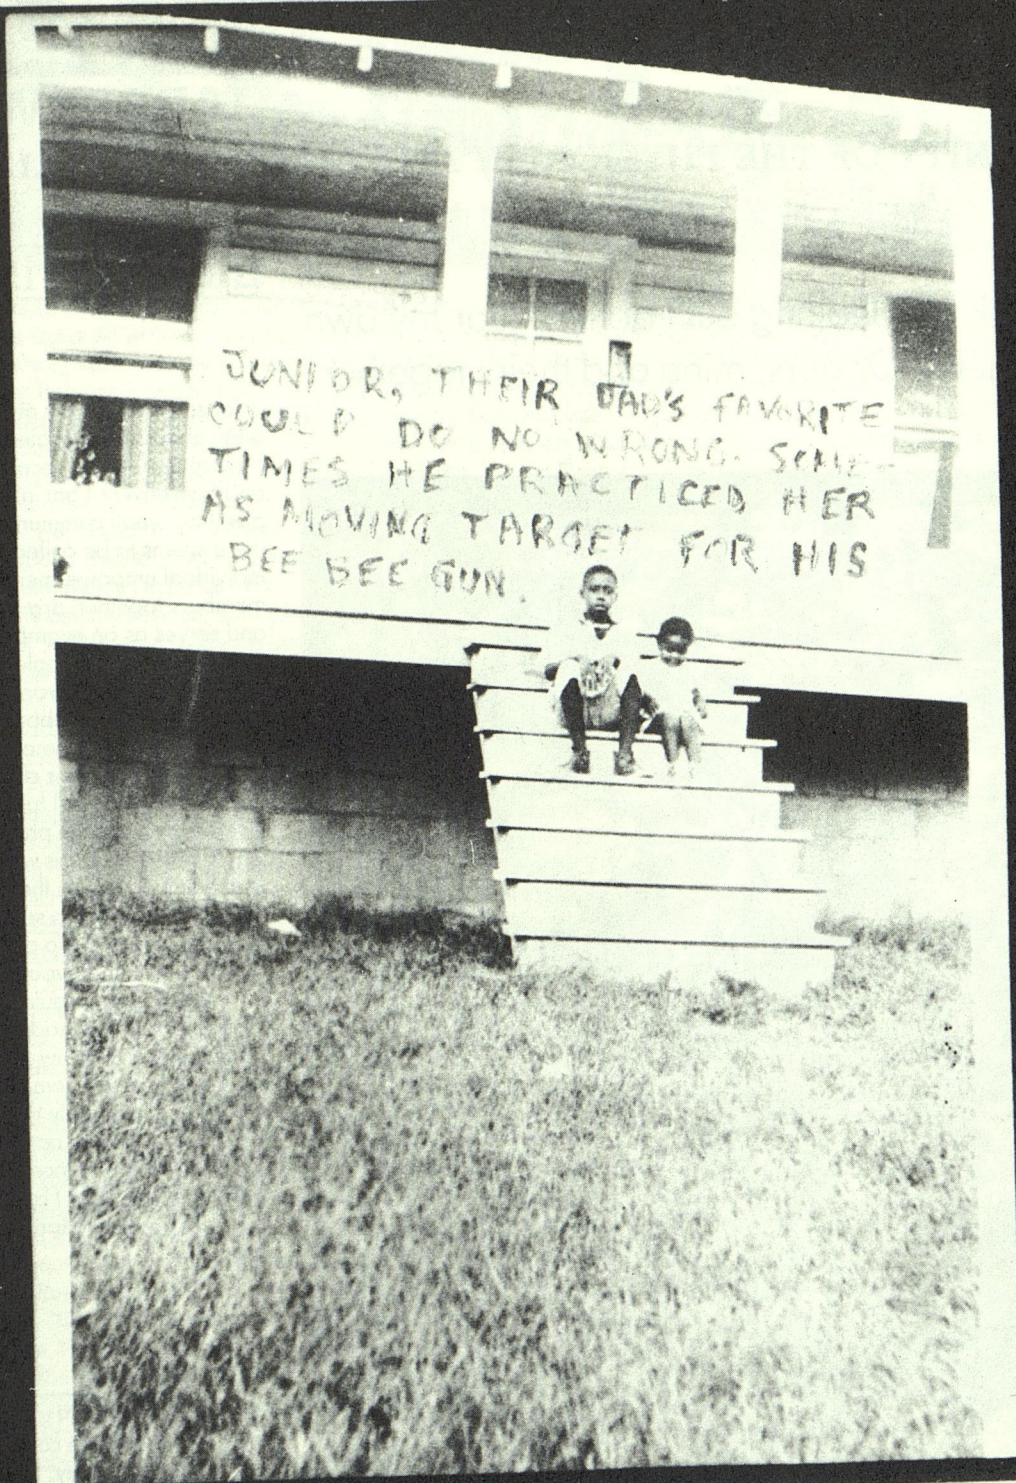 JUNIOR, THEIR DAD'S FAVORITE
COULD DO NO WRONG. SOME-
TIMES HE PRACTICED HER
AS MOVING TARGET FOR HIS
BEE BEE GUN.